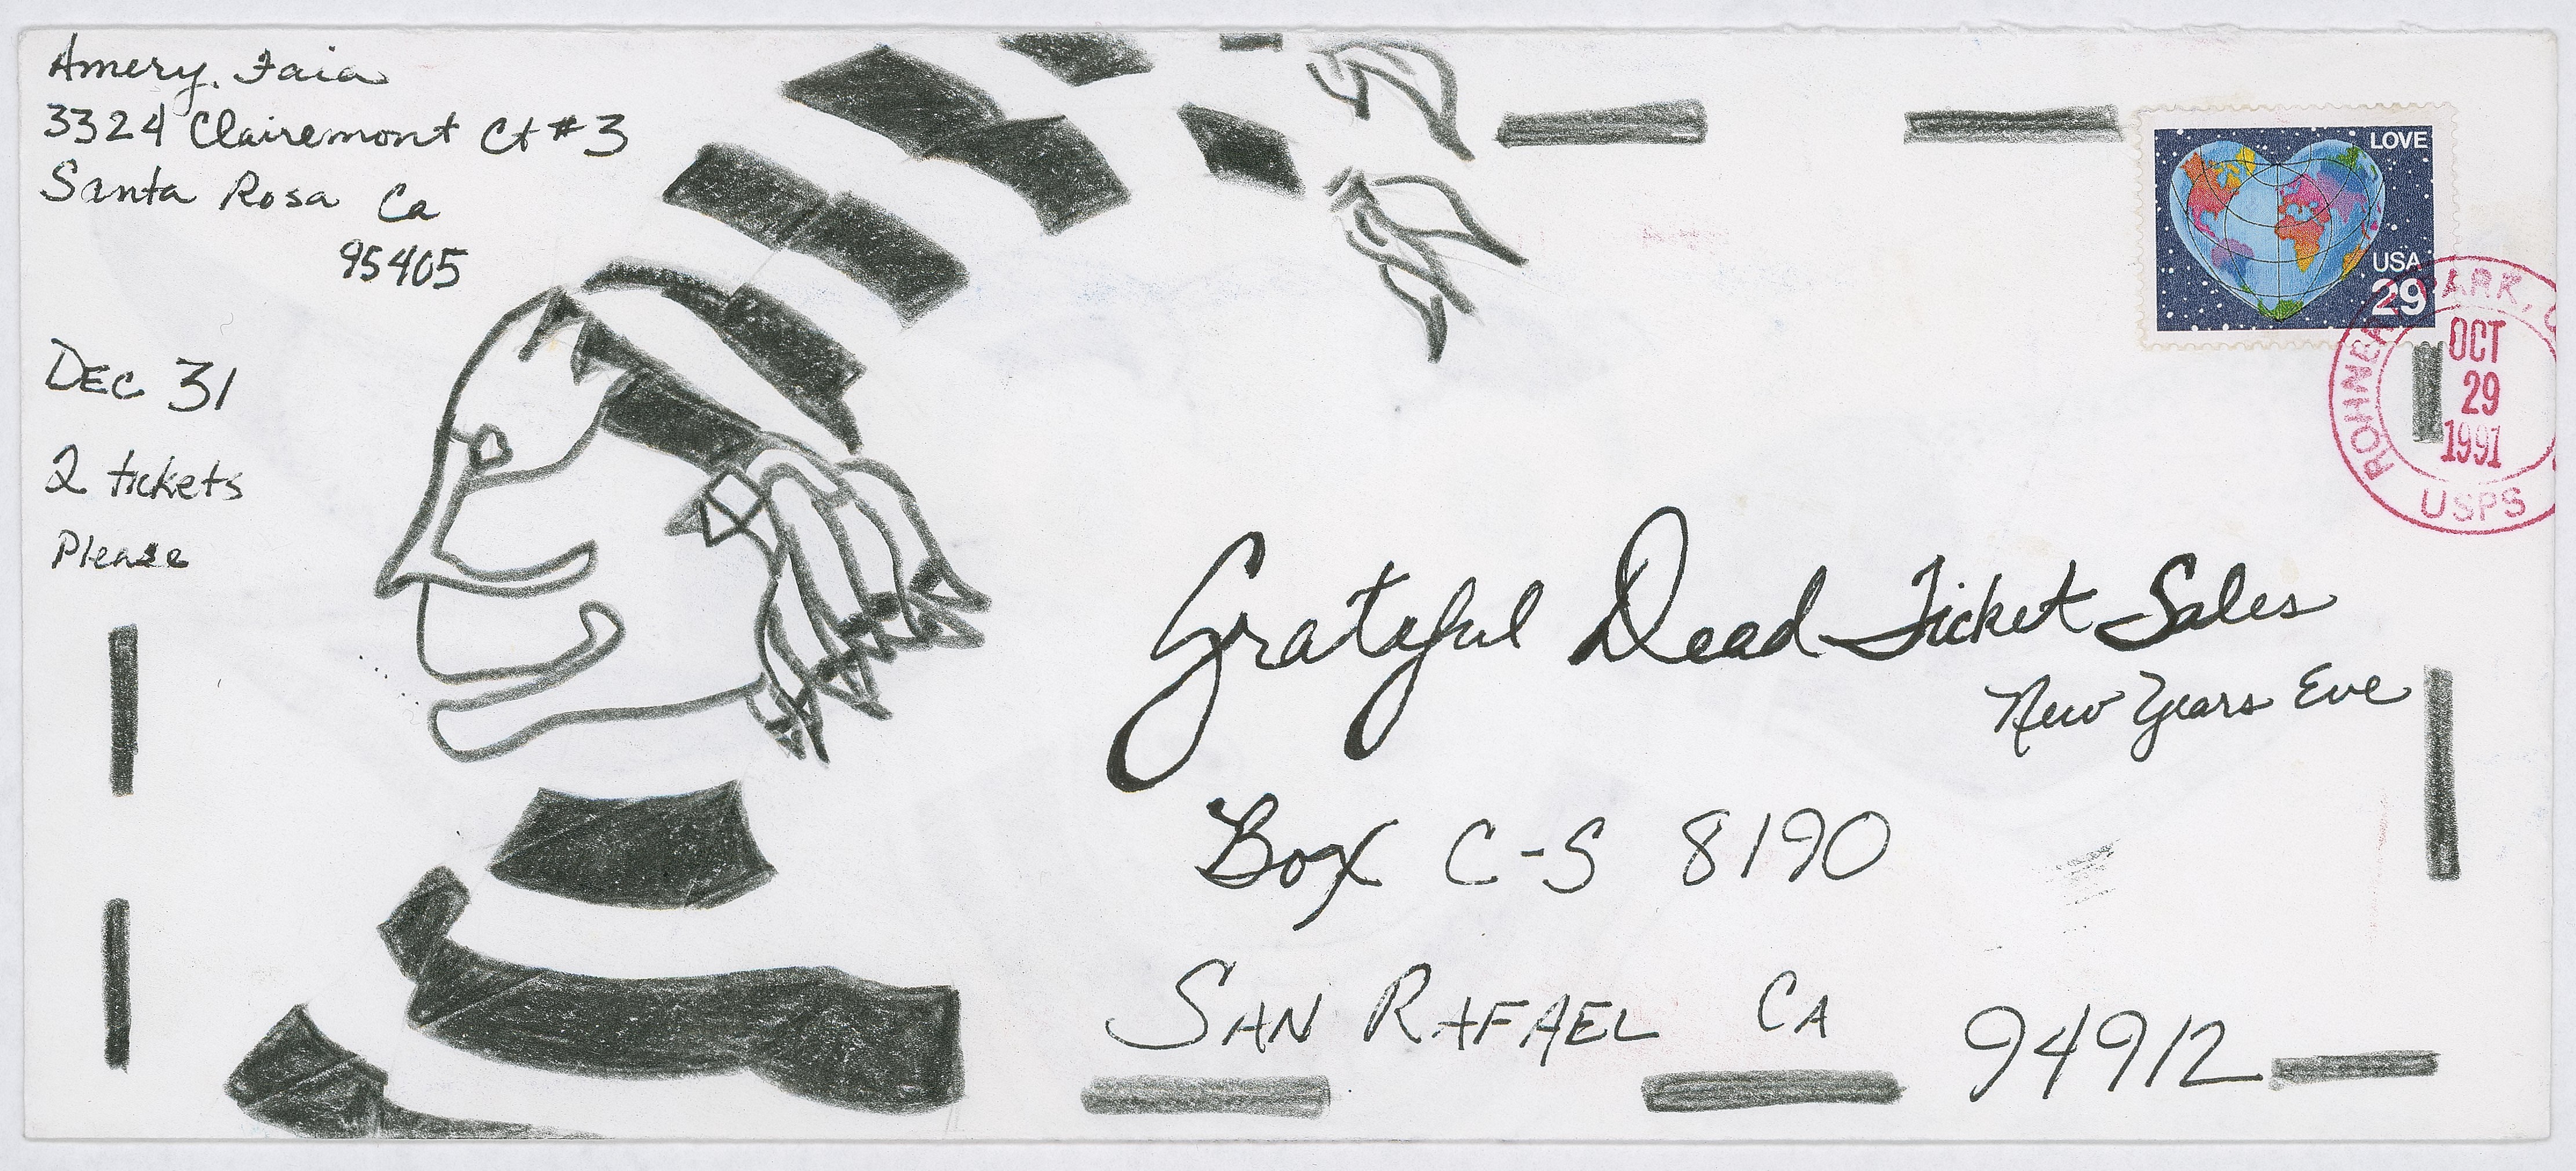 Amery. Faia
3324 Clairemont Ct #3
Santa Rosa Ca
95405
Dec 31
2 tickets
Please
LOVE
USA
29
OCT
29
1991
USPS
Grateful Dead Ticket Sales
New Years Eve
Box C-S 8190
San Rafael CA
94912